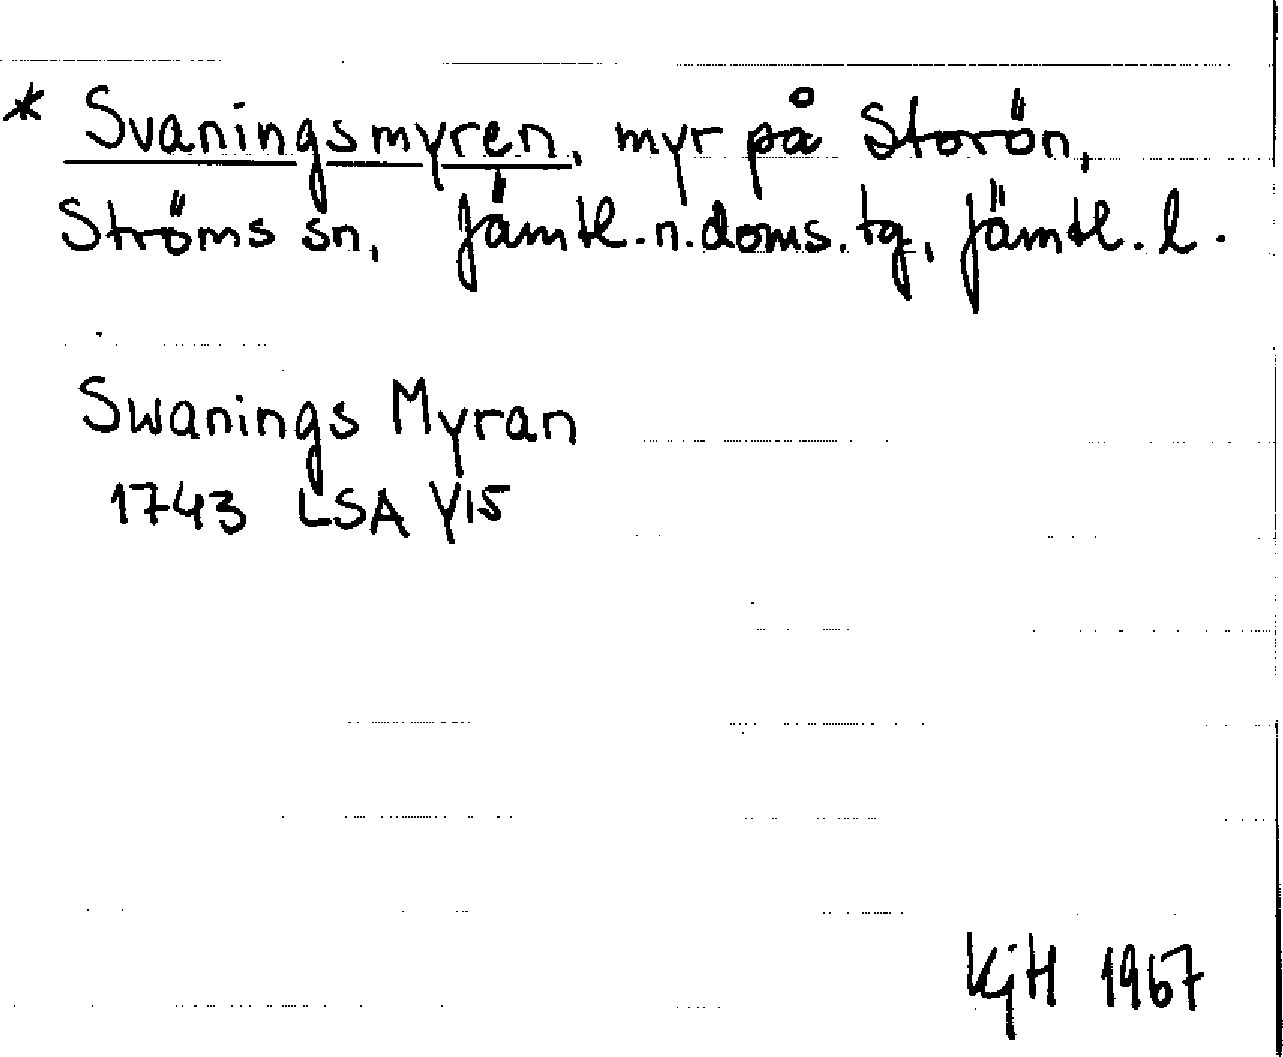 * Svaningsmyren, myr på Storön,
Ströms sn, Jämtl. n. doms. tg, Jämtl. l.
Swanings Myran
1743 LSA Y15
KjH 1967